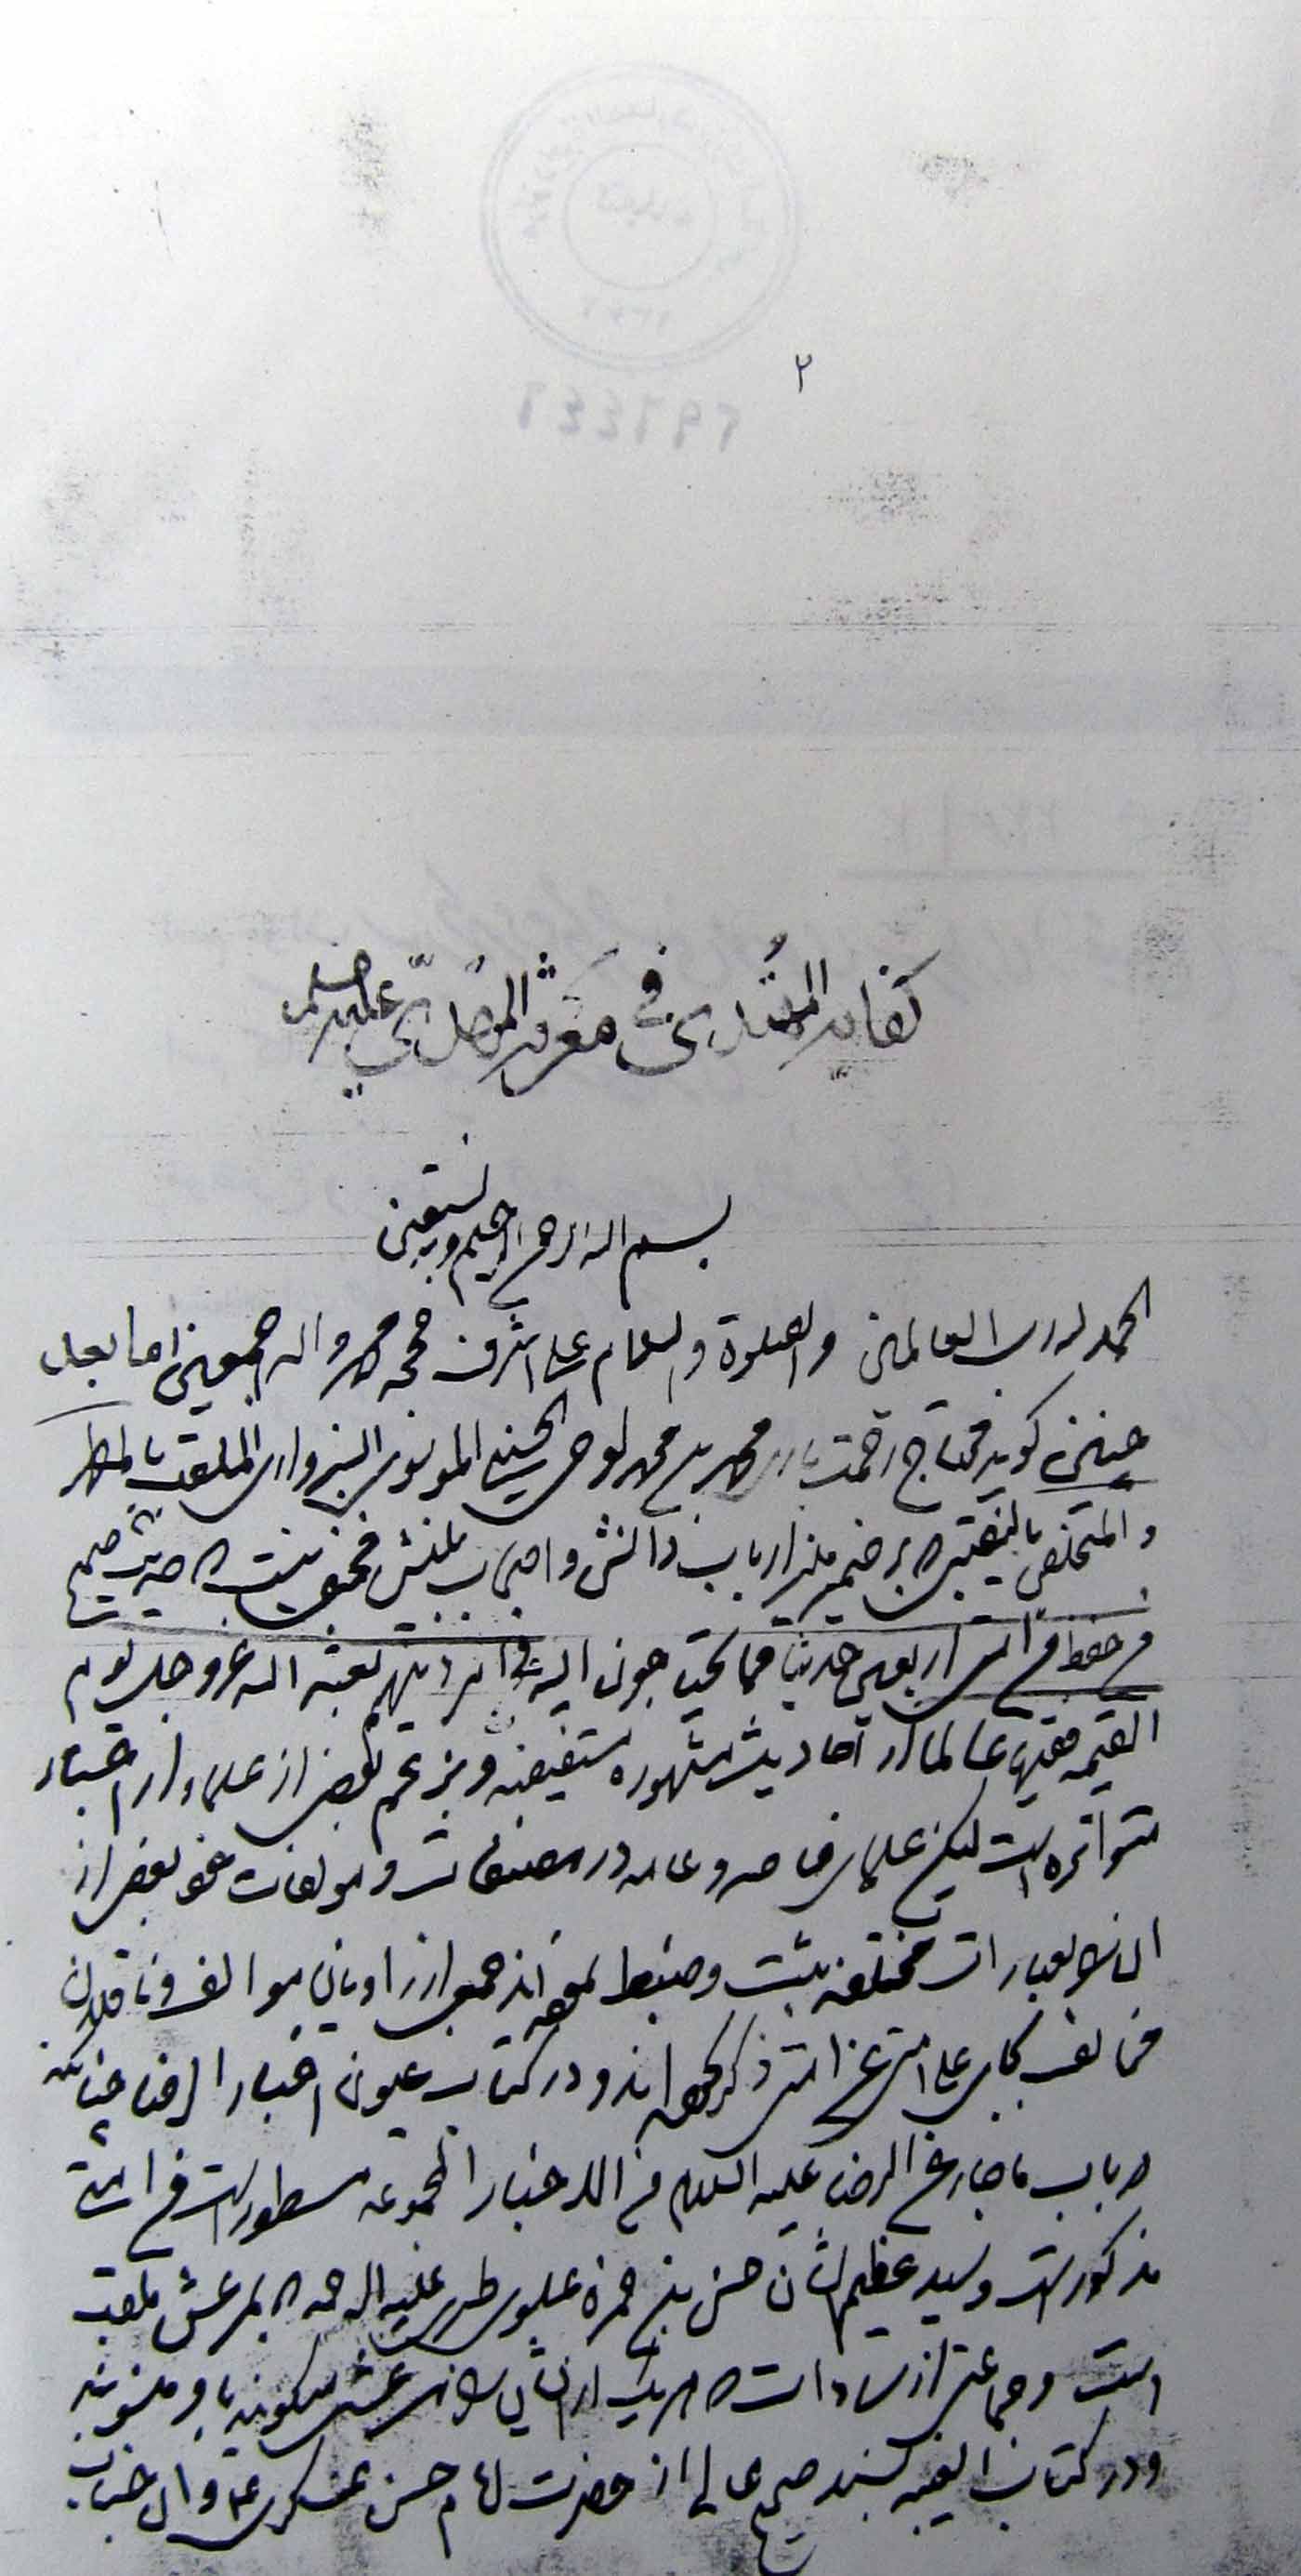 ٢
٢٩٦٤٤٦
كفاية المهتدي في معرفة المهدي عليه السلم
بسم الله الرحمن الرحيم وبه نستعين
الحمد لله رب العالمين والصلوة والسلام على اشرف حججه محمد واله اجمعين اما بعد
چنين كويد محتاج رحمت بارى محمد بن محمد لوحى الحسينى الموسوى السبزوارى الملقب بالمطهر
والمتخلص بالنقيبى كه بر ضمير منير ارباب دانش و اصحاب بينش مخفى نيست كه حديث صحيح
من حفظ من امتى اربعين حديثا مما يحتاجون اليه فى امر دينهم بعثه الله عز و جل يوم
القيمة فقيها عالما از احاديث مشهوره مستفيضه و بزعم بعضى از علماء از اخبار
متواتره است ليكن علماى خاصه و عامه در مصنفات و مولفات خود بعضى از
الفاظ بعبارات مختلفه ثبت و ضبط نموده اند جمعى از راويان موالف و ناقلان
مخالف بجاى على امتى عن امتى ذكر كرده اند و در كتاب عيون اخبار الرضا چنانكه
در باب ما جاء عن الرضا عليه السلام من الاخبار المجموعه مسطور است من امتى
مذكور است و سيد عظيم الشان حسن بن حمزه علوى طبرى عليه الرحمه كه بمرعش ملقب
است و جماعتى از سادات كه مريدان ايشان را مرعشى ميكويند باو منسوبند
و در كتاب الغيبه بسند صحيح عالى از حضرت امام حسن عسكرى ع و ان جناب